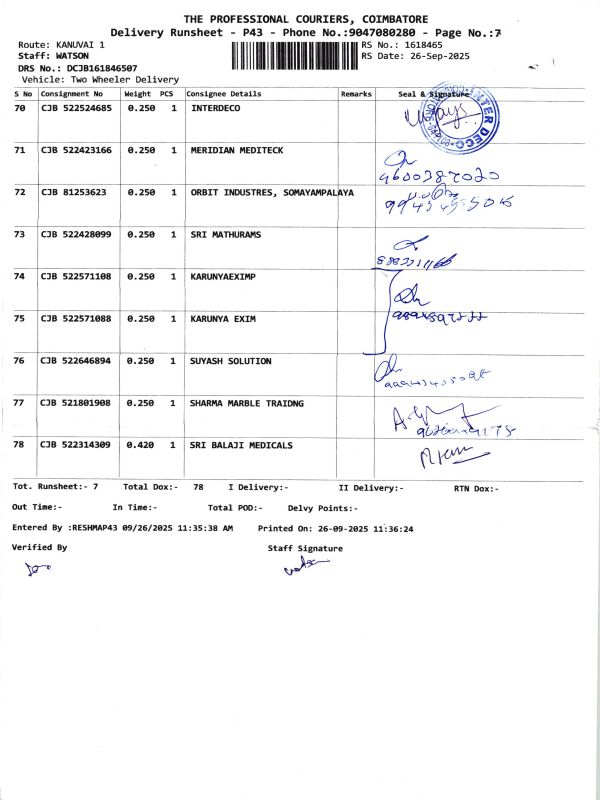 THE PROFESSIONAL COURIERS, COIMBATORE
Delivery Runsheet - P43 - Phone No.:9047080280 - Page No.:7
Route: KANUVAI 1
RS No.: 1618465
Staff: WATSON
RS Date: 26-Sep-2025
DRS No.: DCJB161846507
Vehicle: Two Wheeler Delivery
S No Consignment No Weight PCS Consignee Details Remarks Seal & Signature
70 CJB 522524685 0.250 1 INTERDECO
INTER DECO
71 CJB 522423166 0.250 1 MERIDIAN MEDITECK
9600387020
72 CJB 81253623 0.250 1 ORBIT INDUSTRES, SOMAYAMPALAYA
73 CJB 522428099 0.250 1 SRI MATHURAMS
74 CJB 522571108 0.250 1 KARUNYAEXIMP
75 CJB 522571088 0.250 1 KARUNYA EXIM
76 CJB 522646894 0.250 1 SUYASH SOLUTION
77 CJB 521801908 0.250 1 SHARMA MARBLE TRAIDNG
78 CJB 522314309 0.420 1 SRI BALAJI MEDICALS
Tot. Runsheet:- 7 Total Dox:- 78 I Delivery:- II Delivery:- RTN Dox:-
Out Time:- In Time:- Total POD:- Delvy Points:-
Entered By :RESHMAP43 09/26/2025 11:35:38 AM Printed On: 26-09-2025 11:36:24
Verified By Staff Signature